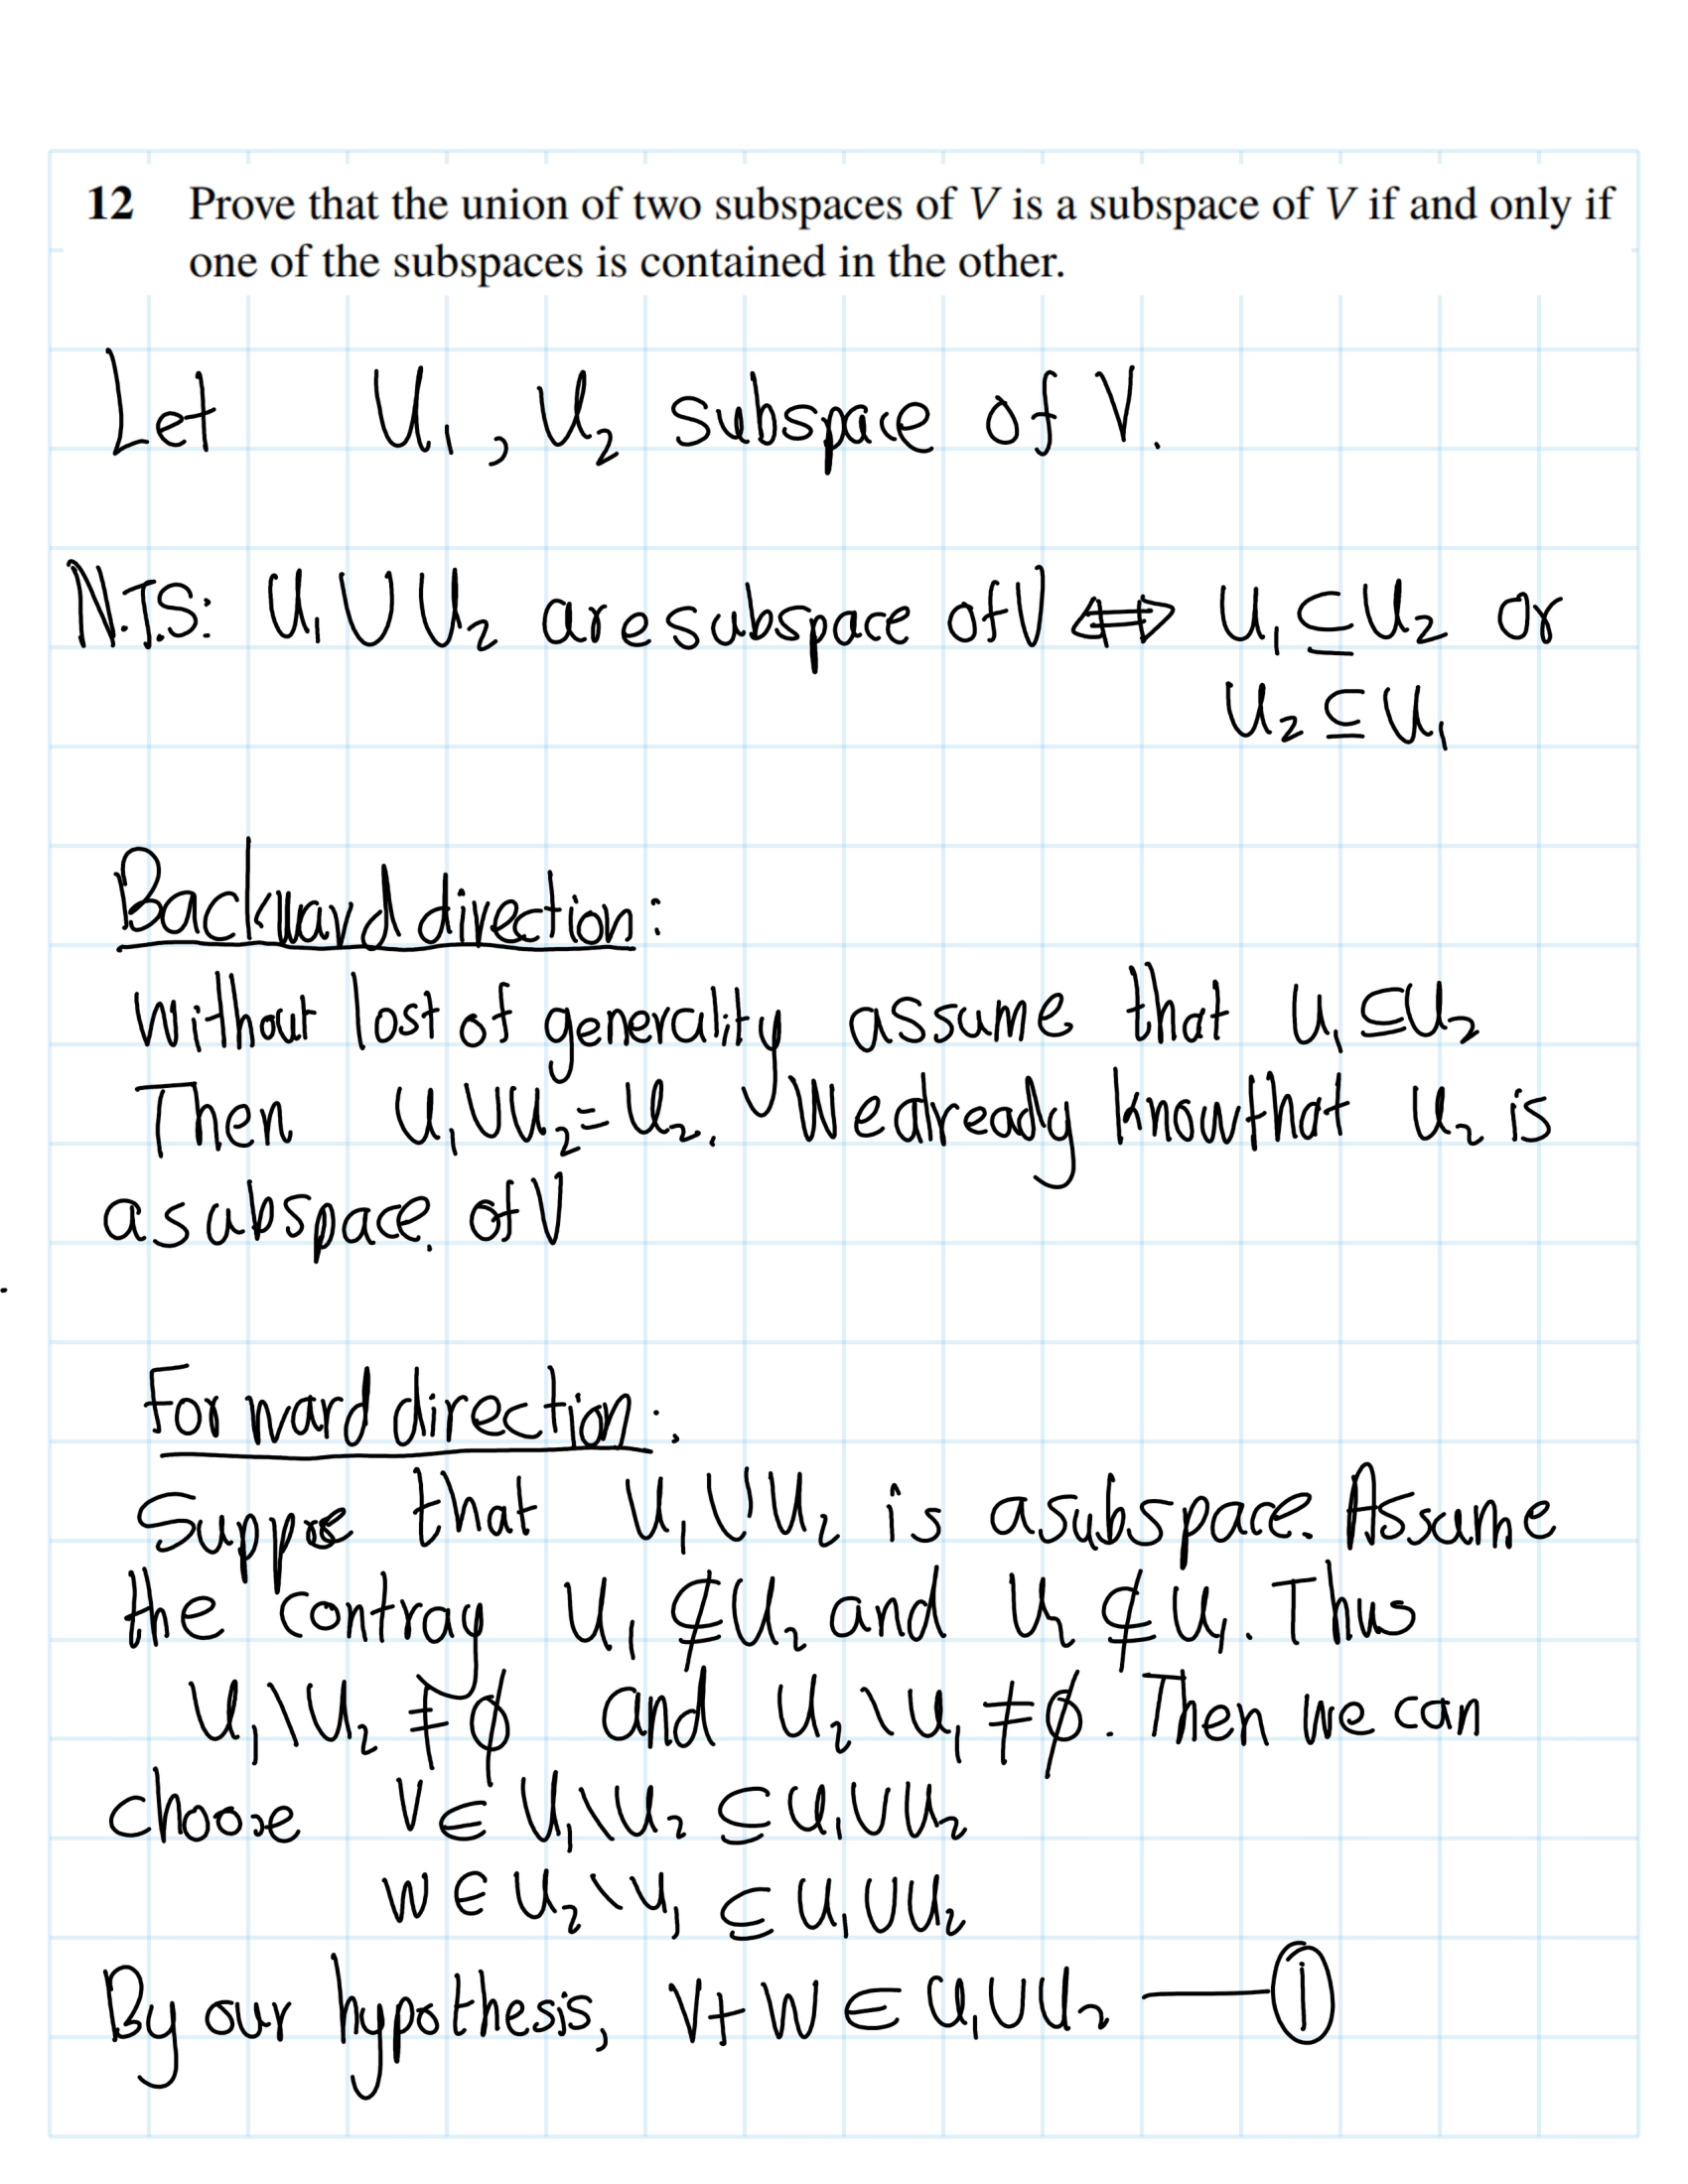 12 Prove that the union of two subspaces of V is a subspace of V if and only if
one of the subspaces is contained in the other.
Let U₁, U₂ subspace of V.
N.T.S: U₁ ∪ U₂ are subspace of V ⟺ U₁ ⊆ U₂ or
U₂ ⊆ U₁
Backward direction:
Without lost of generality assume that U₁ ⊆ U₂
Then U₁ ∪ U₂ = U₂. We already know that U₂ is
a subspace. of V
Forward direction:
Suppose that U₁ ∪ U₂ is a subspace. Assume
the contray U₁ ⊈ U₂ and U₂ ⊈ U₁. Thus
U₁ \ U₂ ≠ ∅ and U₂ \ U₁ ≠ ∅. Then we can
choose V ∈ U₁ \ U₂ ⊆ U₁ ∪ U₂
W ∈ U₂ \ U₁ ⊆ U₁ ∪ U₂
By our hypothesis, V + W ∈ U₁ ∪ U₂ — ①